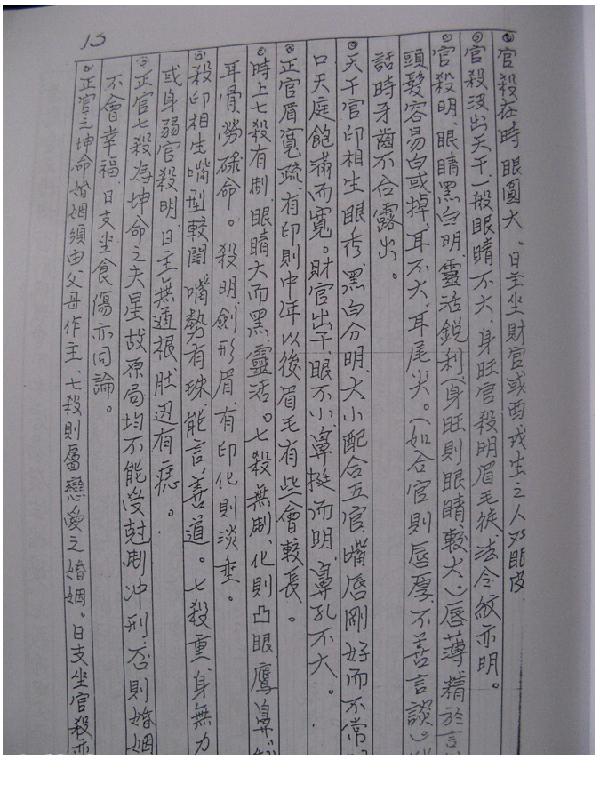 13
官殺在時眼圓大。日主坐財官或酉戌生之人双眼皮
官殺沒出天干一般眼睛不大，身旺官殺明眉毛後法令紋亦明。
官殺明，眼睛黑白明，靈活銳利（身旺則眼睛較大）唇薄，精於言
頭髮容易白或掉，耳不大，耳尾尖。（如合官則唇厚，不善言談）
話時牙齒不合露出。
天干官印相生眼秀，黑白分明，大小配合五官，嘴唇剛好而不常
口天庭飽滿而寬。財官出干，眼不小，鼻挺而明，鼻孔不大。
正官眉寬疏，有印則中年以後眉毛有些會較長。
時上七殺有制，眼睛大而黑靈活。七殺無制、化則凸眼鷹鼻
耳骨勞碌命。殺明劍形眉有印化則淡些。
殺印相生嘴型較闊，嘴勢有珠，能言善道。七殺重身無力
或身弱官殺明，日主無通根肚邊有痣。
正官七殺為坤命之夫星故原局均不能受尅制冲刑，否則婚姻
不會幸福，日支坐食傷亦同論。
正官之坤命婚姻須由父母作主，七殺則屬戀愛之婚姻。日支坐官殺